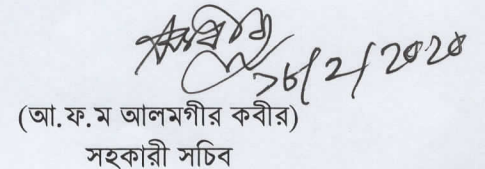 ১৮/২/২০২০
(আ.ফ.ম আলমগীর কবীর)
সহকারী সচিব